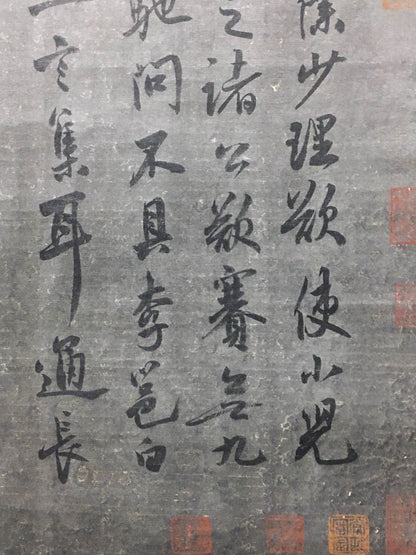 除少理欲使小兒
之諸公欲賽無九
馳問不具李邕白
言集耳通長